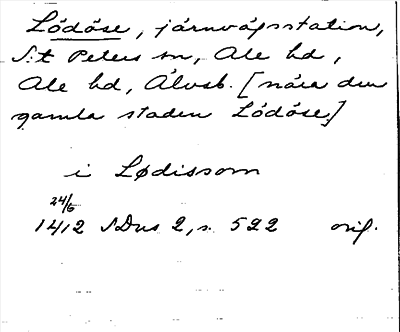 Lödöse, järnvägsstation,
S:t Peters sn, Ale hd,
Ale hd, Älvsb. [nära den
gamla staden Lödöse]
i Lødissom
24/6
1412 SDns 2, s. 522 orig.